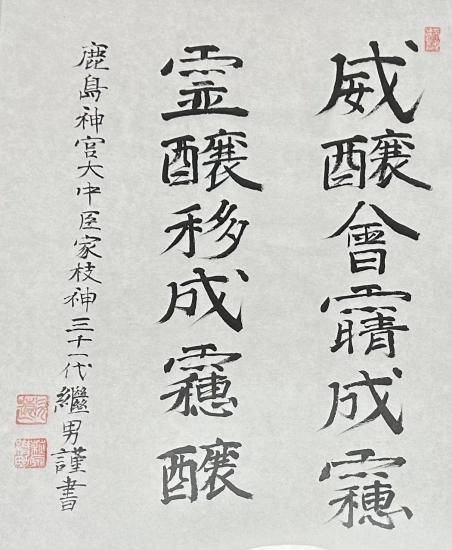 威釀會成
霊釀移成釀
鹿島神宮大中臣家枝神三十一代繼男謹書